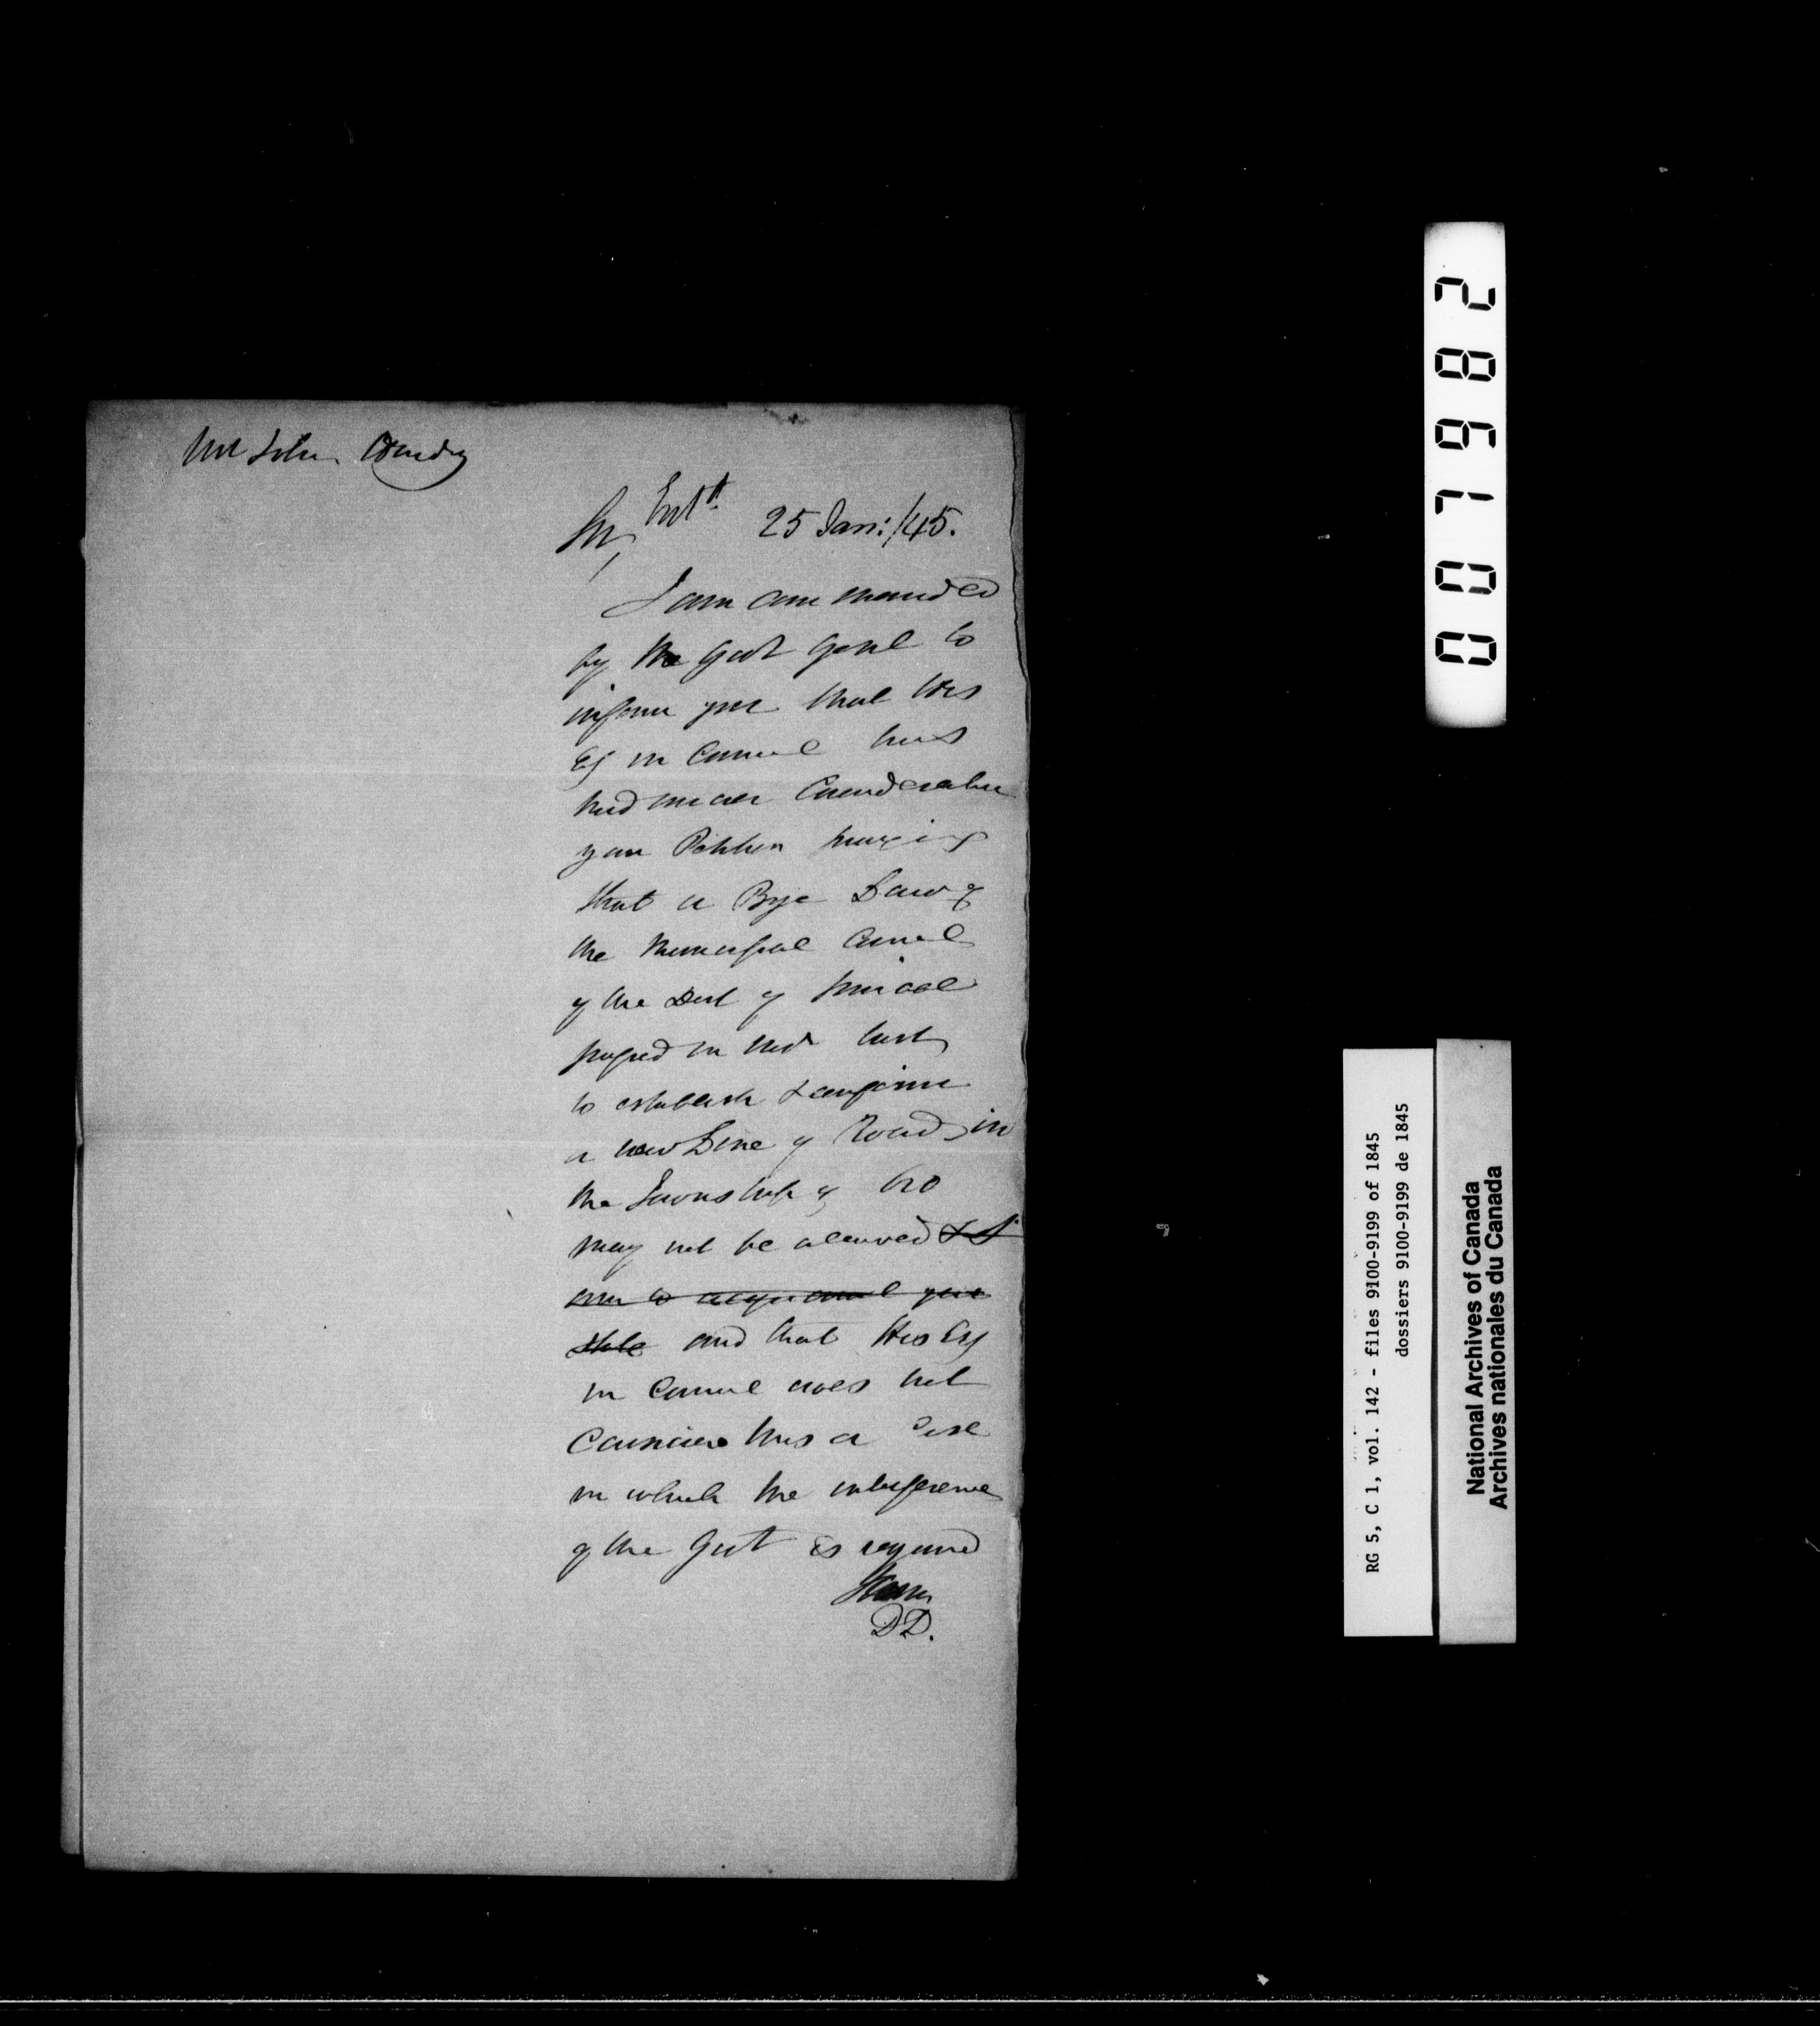 Mr John
Sir, Ent^d 25 Jan: /45.
I am commanded
by the Govt Genl to
inform you that His
Ey in Council has
had under Consideration
your Petition praying
that a Bye Law of
the Municipal Council
of the Dist of Simcoe
passed in last
to establish & confirm
a new Line of Road in
the Township of Oro
may not be allowed & I
am to acquaint you
that and that His Ey
in Council does not
Consider this a Case
in which the interference
of the Govt is required
I have
DD.
0071682
RG 5, C 1, vol. 142 - files 9100-9199 of 1845
dossiers 9100-9199 de 1845
National Archives of Canada
Archives nationales du Canada